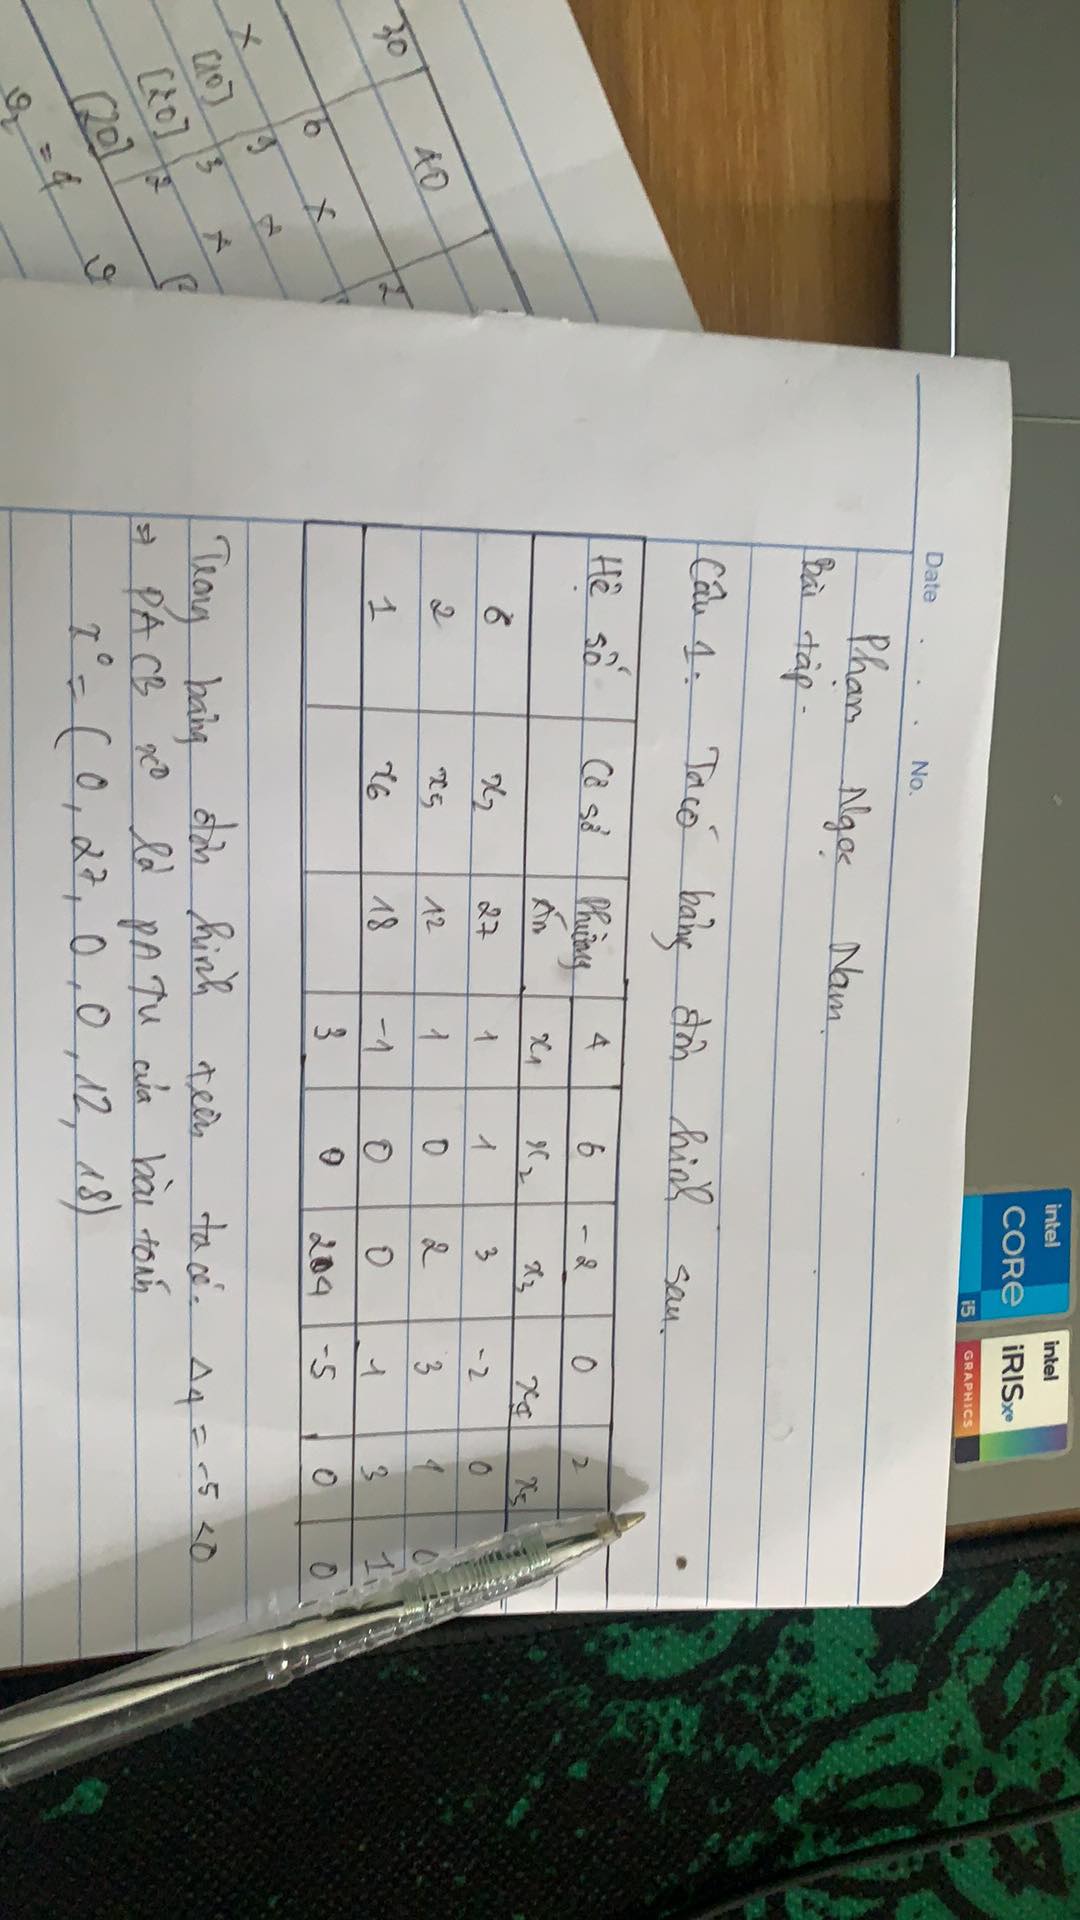 intel CORE i5
intel iRISxe GRAPHICS
Date . . . No.
Phạm Ngọc Nam.
Bài tập.
Câu 1: Ta có bảng đơn hình sau.
Hệ số Cơ sở Phương 4 6 -2 0 2
Án x1 x2 x3 x4 x5
6 x2 27 1 1 3 -2 0
2 x5 12 1 0 2 3 1 0
1 x6 18 -1 0 0 1 3 1
3 0 204 -5 0 0
Trong bảng đơn hình trên ta có: Δ4 = -5 <0
⇒ PACB x⁰ là PATU của bài toán
x⁰ = ( 0, 27, 0, 0, 12, 18)
30 40
6 x
x 9 +
[10] 3 +
[20] 2
[20]
= 4